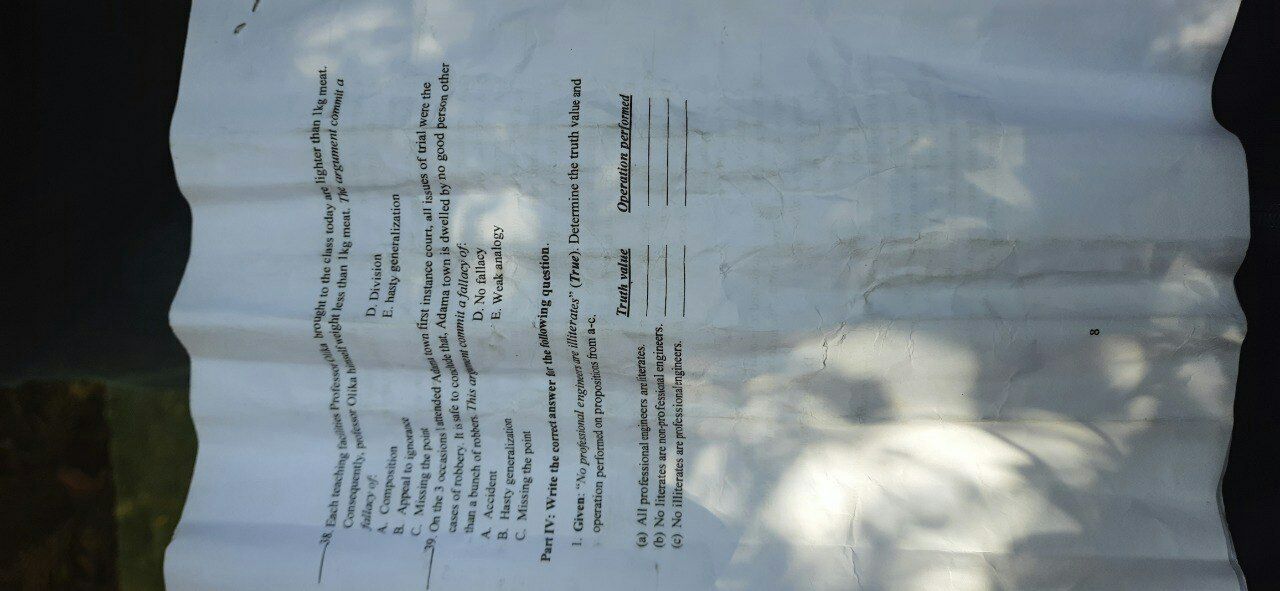 38. Each teaching facilities Professor Olika brought to the class today are lighter than 1kg meat.
Consequently, professor Olika himself weight less than 1kg meat. The argument commit a
fallacy of:
A. Composition
D. Division
B. Appeal to ignorance
E. hasty generalization
C. Missing the point
39. On the 3 occasions I attended Adama town first instance court, all issues of trial were the
cases of robbery. It is safe to conclude that, Adama town is dwelled by no good person other
than a bunch of robbers. This argument commit a fallacy of:
A. Accident
D. No fallacy
B. Hasty generalization
E. Weak analogy
C. Missing the point
Part IV: Write the correct answer for the following question.
1. Given: “No professional engineers are illiterates” (True). Determine the truth value and
operation performed on propositions from a-c.
Truth value
Operation performed
(a) All professional engineers are literates.
(b) No literates are non-professional engineers.
(c) No illiterates are professional engineers.
8